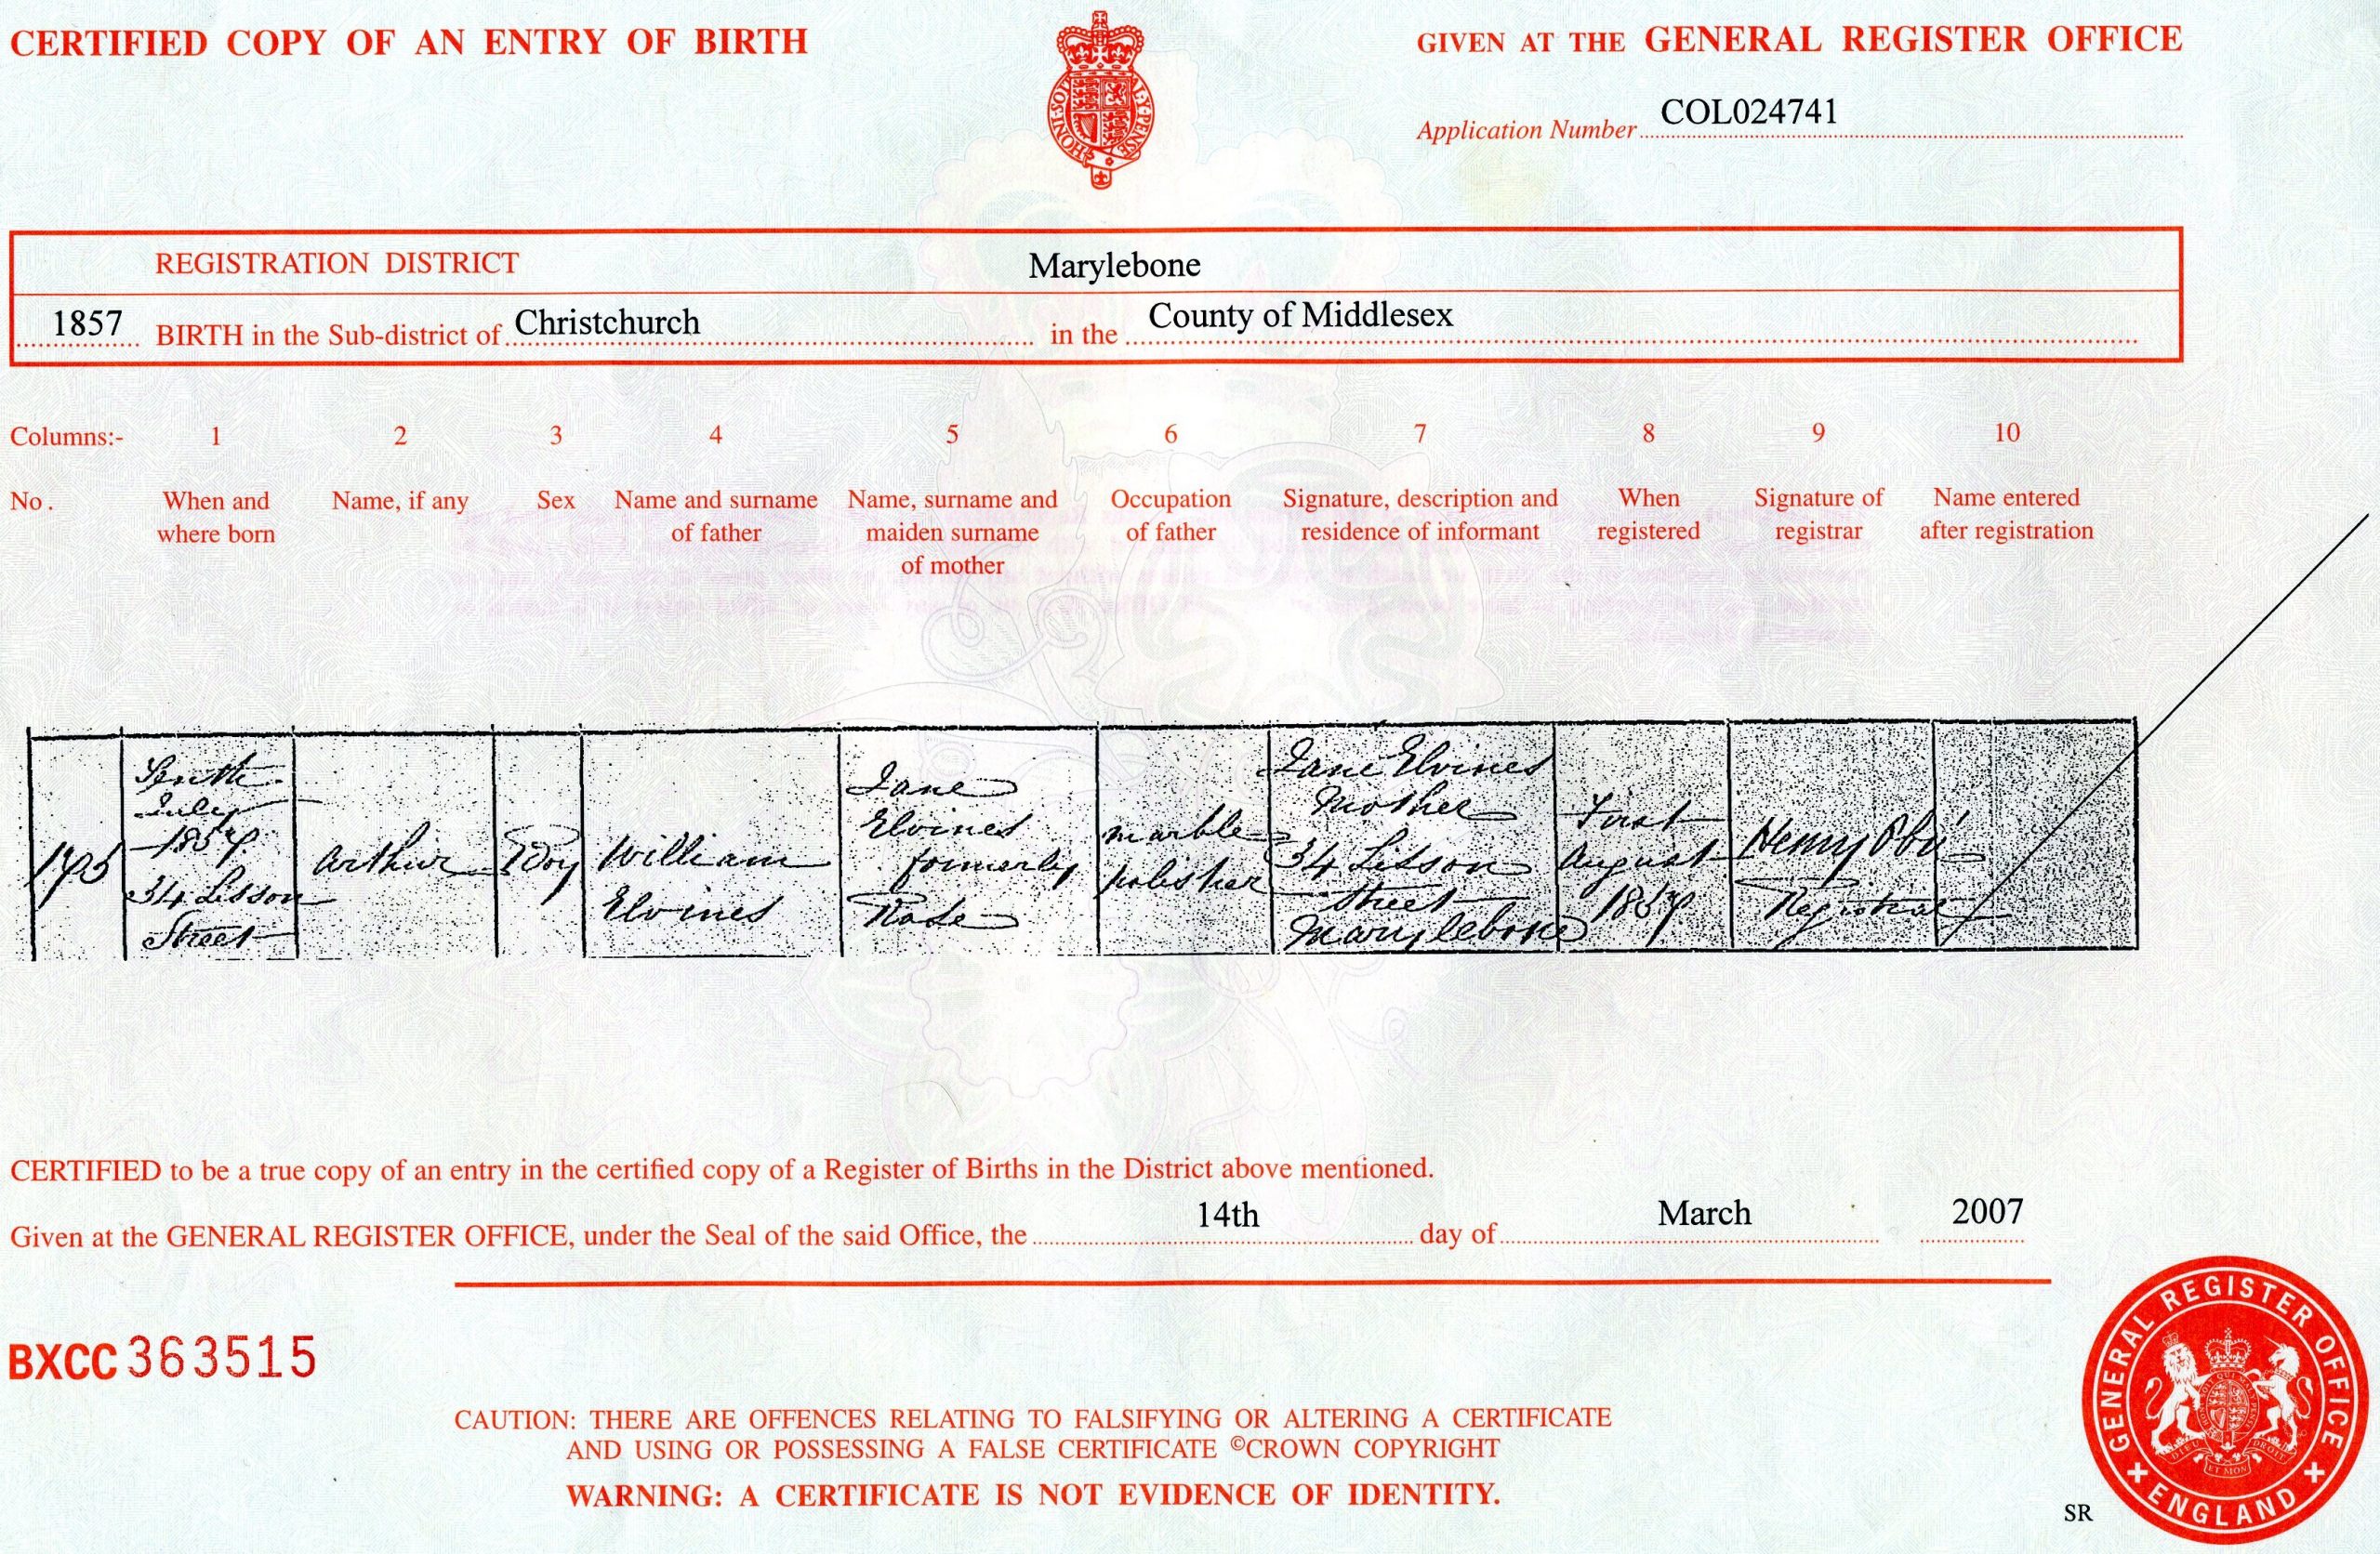 CERTIFIED COPY OF AN ENTRY OF BIRTH
GIVEN AT THE GENERAL REGISTER OFFICE
HONI·SOIT
MAL·Y·PENSE
Application Number COL024741
REGISTRATION DISTRICT Marylebone
1857 BIRTH in the Sub-district of Christchurch in the County of Middlesex
Columns:- 1 2 3 4 5 6 7 8 9 10
No. When and where born
Name, if any
Sex
Name and surname of father
Name, surname and maiden surname of mother
Occupation of father
Signature, description and residence of informant
When registered
Signature of registrar
Name entered after registration
July
1857
34 Lisson
Street
Arthur
Boy
William
Elvines
Jane
Elvines
formerly
marble
polisher
Jane Elvines
Mother
34 Lisson
Street
Marylebone
First
August
1857
Henry
Registrar
CERTIFIED to be a true copy of an entry in the certified copy of a Register of Births in the District above mentioned.
Given at the GENERAL REGISTER OFFICE, under the Seal of the said Office, the 14th day of March 2007
BXCC 363515
CAUTION: THERE ARE OFFENCES RELATING TO FALSIFYING OR ALTERING A CERTIFICATE
AND USING OR POSSESSING A FALSE CERTIFICATE ©CROWN COPYRIGHT
WARNING: A CERTIFICATE IS NOT EVIDENCE OF IDENTITY.
SR
GENERAL REGISTER OFFICE
ENGLAND